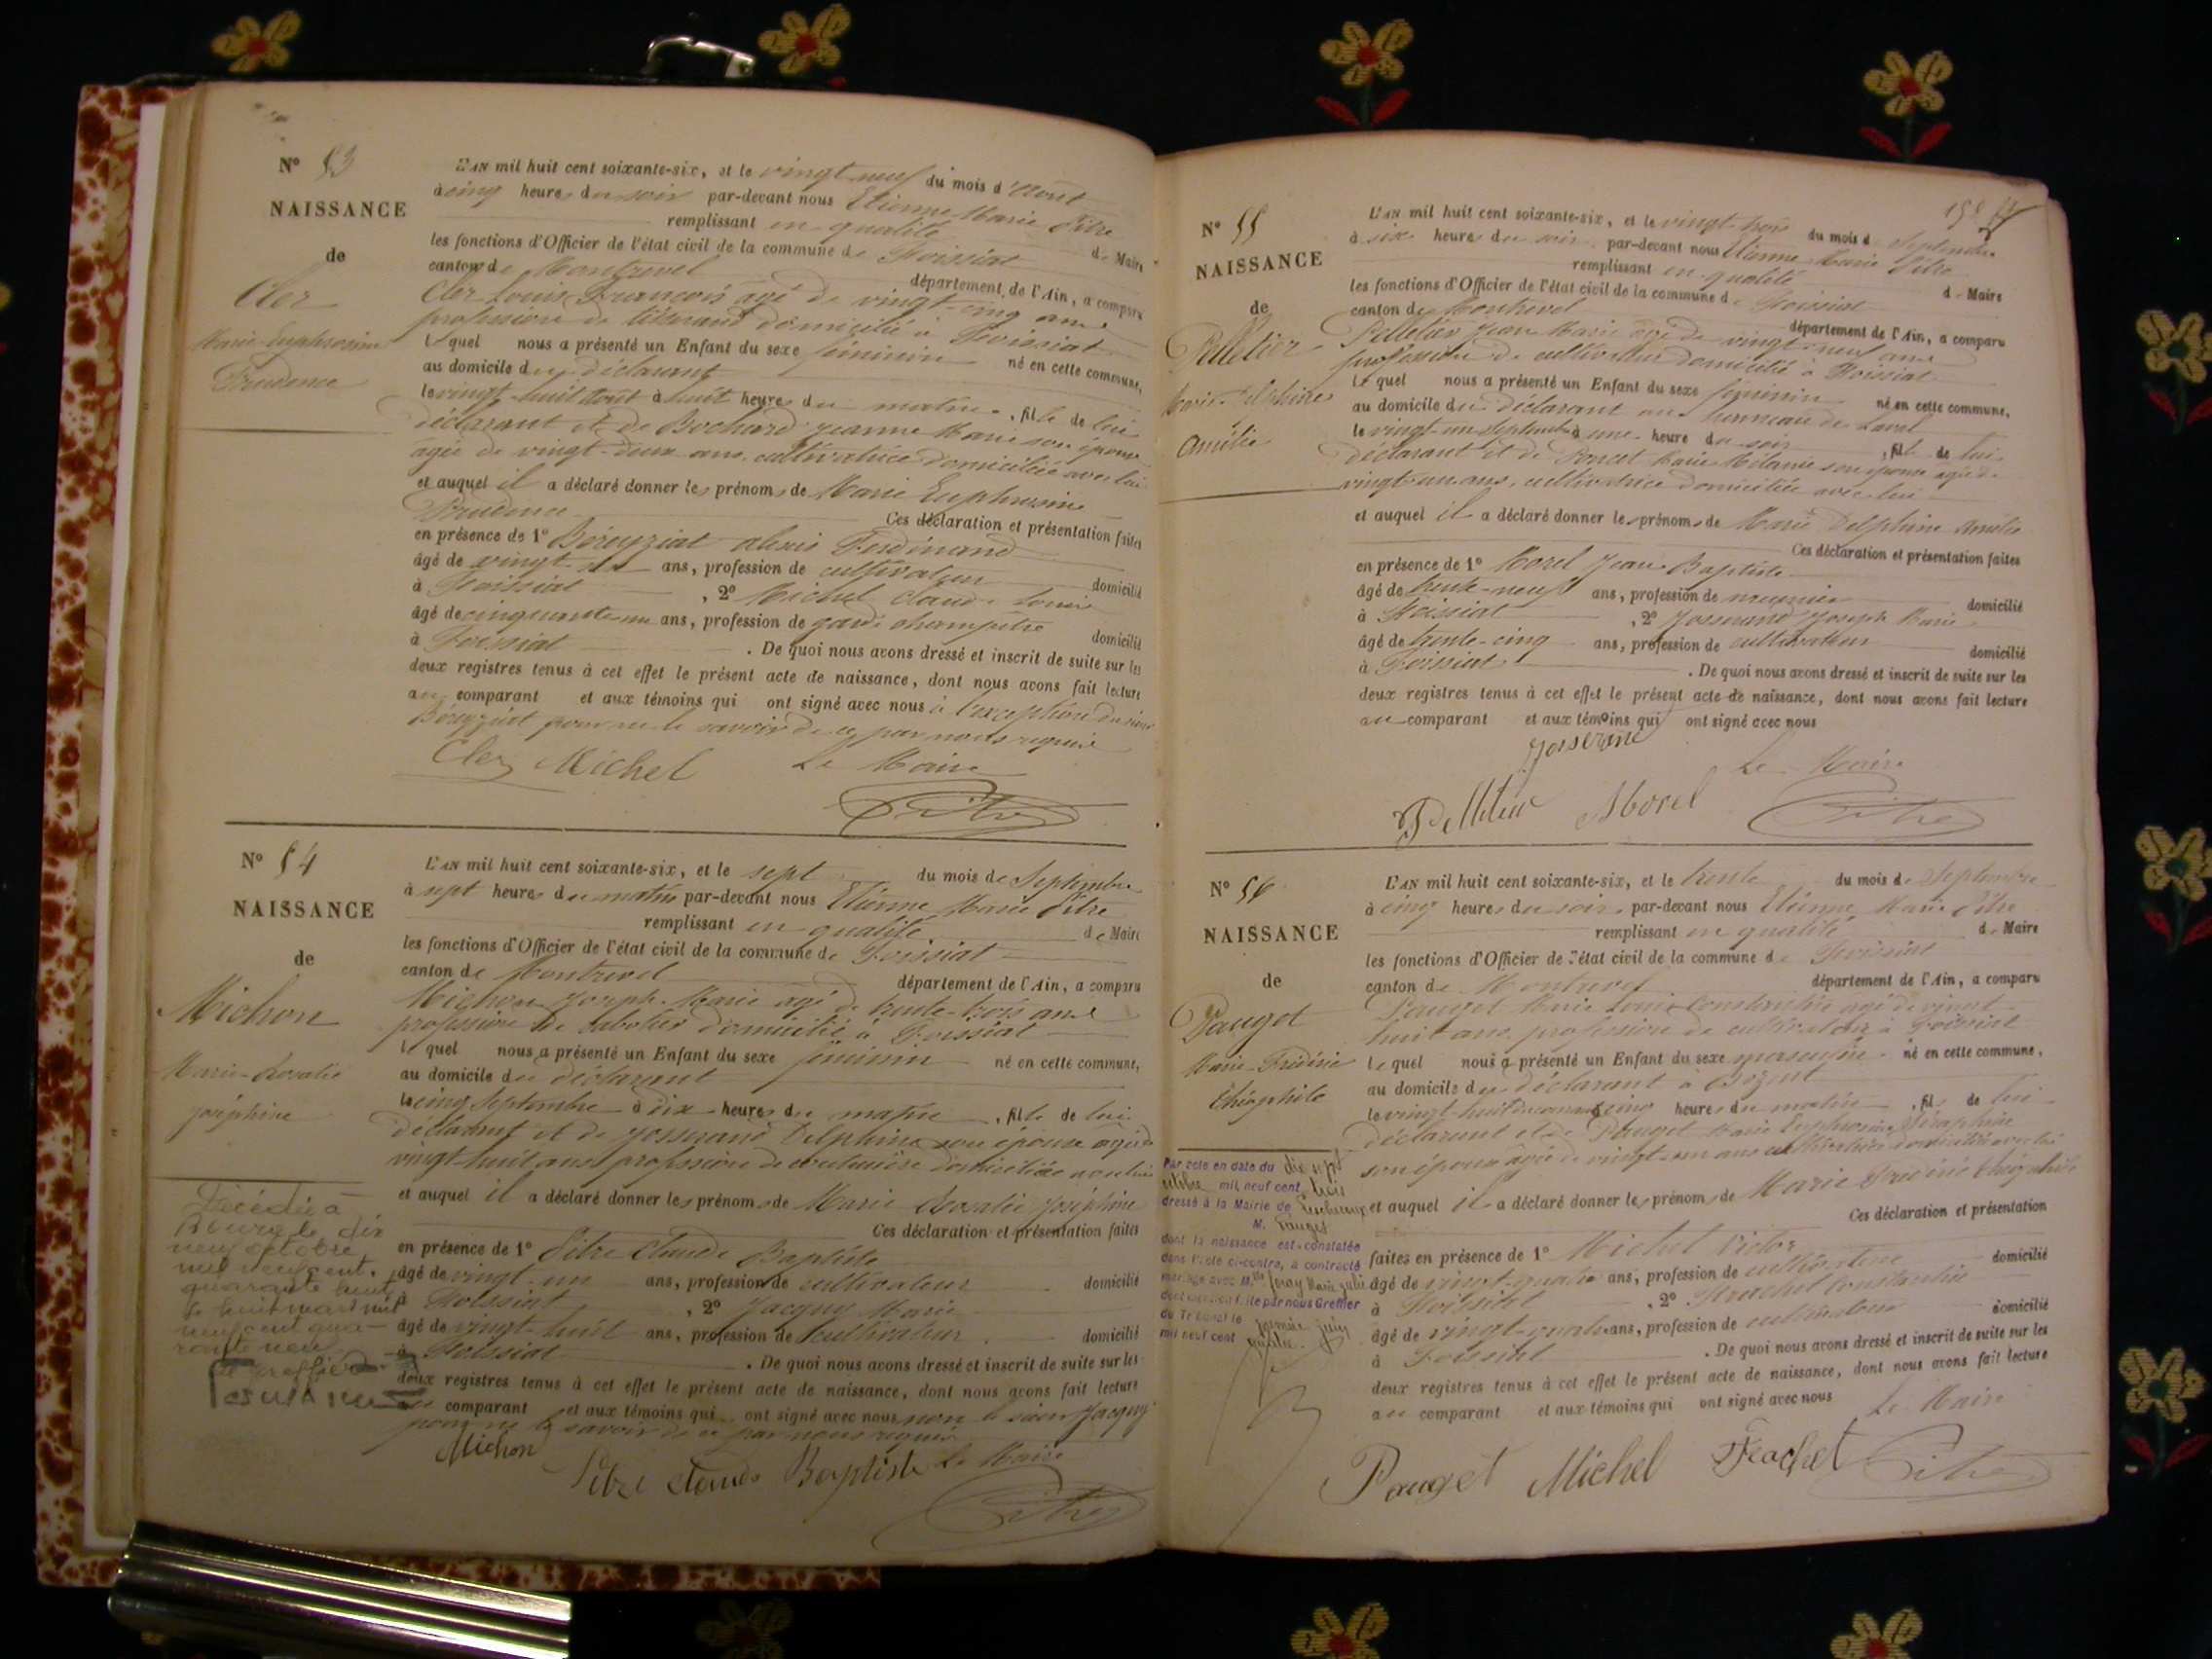 N° 53
NAISSANCE
de
Cler
Marie Euphrosine
Prudence
L'AN mil huit cent soixante-six, et le vingt neuf du mois d'Août
à cinq heures du soir par-devant nous Etienne Marie Pitre
remplissant en qualité de Maire
les fonctions d'Officier de l'état civil de la commune de Foissiat
canton de Montrevel département de l'Ain, a comparu
Cler Louis François âgé de vingt-cinq ans
profession de tisserand domicilié à Foissiat
lequel nous a présenté un Enfant du sexe féminin né en cette commune,
au domicile du déclarant
le vingt-huit Août à huit heures du matin, fille de lui
déclarant et de Bochard Jeanne Marie son épouse
âgée de vingt-deux ans cultivatrice domiciliée avec lui
et auquel il a déclaré donner les prénoms de Marie Euphrosine
Prudence Ces déclaration et présentation faites
en présence de 1° Béreyziat alexis Ferdinand
âgé de vingt ans, profession de cultivateur domicilié
à Foissiat, 2° Michel Claude Louis
âgé de cinquante un ans, profession de garde champêtre domicilié
à Foissiat. De quoi nous avons dressé et inscrit de suite sur les
deux registres tenus à cet effet le présent acte de naissance, dont nous avons fait lecture
au comparant et aux témoins qui ont signé avec nous à l'exception du sieur
Béreyziat pour ne le savoir de ce par nous requis
Cler Michel Le Maire
Pitre
N° 54
NAISSANCE
de
Michon
Marie-Rosalie
Joséphine
Décédée à
Bourg le dix
neuf octobre
mil neuf cent
quarante huit
le huit mars mil
neuf cent qua-
rante neuf
Le greffier
L'AN mil huit cent soixante-six, et le sept du mois de Septembre
à sept heures du matin par-devant nous Etienne Marie Pitre
remplissant en qualité de Maire
les fonctions d'Officier de l'état civil de la commune de Foissiat
canton de Montrevel département de l'Ain, a comparu
Michon Joseph Marie âgé de trente-trois ans
profession de sabotier domicilié à Foissiat
lequel nous a présenté un Enfant du sexe féminin né en cette commune,
au domicile du déclarant
le cinq Septembre à dix heures du matin, fille de lui
déclarant et de Josserand Delphine son épouse âgée de
vingt-huit ans profession de couturière domiciliée avec lui
et auquel il a déclaré donner les prénoms de Marie Rosalie Joséphine
Ces déclaration et présentation faites
en présence de 1° Pitre Claude Baptiste
âgé de vingt-un ans, profession de cultivateur domicilié
à Foissiat, 2° Jacquy Marie
âgé de vingt-huit ans, profession de cultivateur domicilié
à Foissiat. De quoi nous avons dressé et inscrit de suite sur les
deux registres tenus à cet effet le présent acte de naissance, dont nous avons fait lecture
au comparant et aux témoins qui ont signé avec nous non le sieur Jacquy
pour ne le savoir de ce par nous requis
Michon Pitre Claude Baptiste Le Maire
Pitre
N° 55
NAISSANCE
de
Pelletier
Marie Delphine
Amélie
L'AN mil huit cent soixante-six, et le vingt-trois du mois de Septembre
à six heures du soir par-devant nous Etienne Marie Pitre
remplissant en qualité de Maire
les fonctions d'Officier de l'état civil de la commune de Foissiat
canton de Montrevel département de l'Ain, a comparu
Pelletier Jean Marie âgé de vingt-neuf ans
profession de cultivateur domicilié à Foissiat
lequel nous a présenté un Enfant du sexe féminin né en cette commune,
au domicile du déclarant au hameau de Lavel
le vingt-un Septembre à une heure du soir, fille de lui
déclarant et de Poncet Marie Mélanie son épouse âgée de
vingt-un ans, cultivatrice domiciliée avec lui
et auquel il a déclaré donner les prénoms de Marie Delphine Amélie
Ces déclaration et présentation faites
en présence de 1° Morel Jean Baptiste
âgé de trente-neuf ans, profession de meunier domicilié
à Foissiat, 2° Josserand Joseph Marie
âgé de trente-cinq ans, profession de cultivateur domicilié
à Foissiat. De quoi nous avons dressé et inscrit de suite sur les
deux registres tenus à cet effet le présent acte de naissance, dont nous avons fait lecture
au comparant et aux témoins qui ont signé avec nous
Josserand Le Maire
Pelletier Morel Pitre
N° 56
NAISSANCE
de
Pauget
Marie-Frédéric
Théophile
Par acte en date du dix sept
octobre mil neuf cent trois
dressé à la Mairie de
M. Pauget
dont la naissance est constatée
dans l'acte ci-contre, a contracté
mariage avec Mlle Feray Marie Julie
par nous Greffier
du Tribunal le premier juin
mil neuf cent quatre
L'AN mil huit cent soixante-six, et le trente du mois de Septembre
à cinq heures du soir par-devant nous Etienne Marie Pitre
remplissant en qualité de Maire
les fonctions d'Officier de l'état civil de la commune de Foissiat
canton de Montrevel département de l'Ain, a comparu
Pauget Marie Louis Constantin âgé de vingt
huit ans, profession de cultivateur à Foissiat
lequel nous a présenté un Enfant du sexe masculin né en cette commune,
au domicile du déclarant à
le vingt-huit du courant à cinq heures du matin, fils de lui
déclarant et de Pauget Marie Euphrosine Séraphine
son épouse âgée de vingt-un ans cultivatrice domiciliée avec lui
et auquel il a déclaré donner les prénoms de Marie Frédéric Théophile
Ces déclaration et présentation
faites en présence de 1° Michel Victor
âgé de vingt-quatre ans, profession de cultivateur domicilié
à Foissiat, 2° Frachet Constantin
âgé de vingt-quatre ans, profession de cultivateur domicilié
à Foissiat. De quoi nous avons dressé et inscrit de suite sur les
deux registres tenus à cet effet le présent acte de naissance, dont nous avons fait lecture
au comparant et aux témoins qui ont signé avec nous Le Maire
Pauget Michel Frachet Pitre